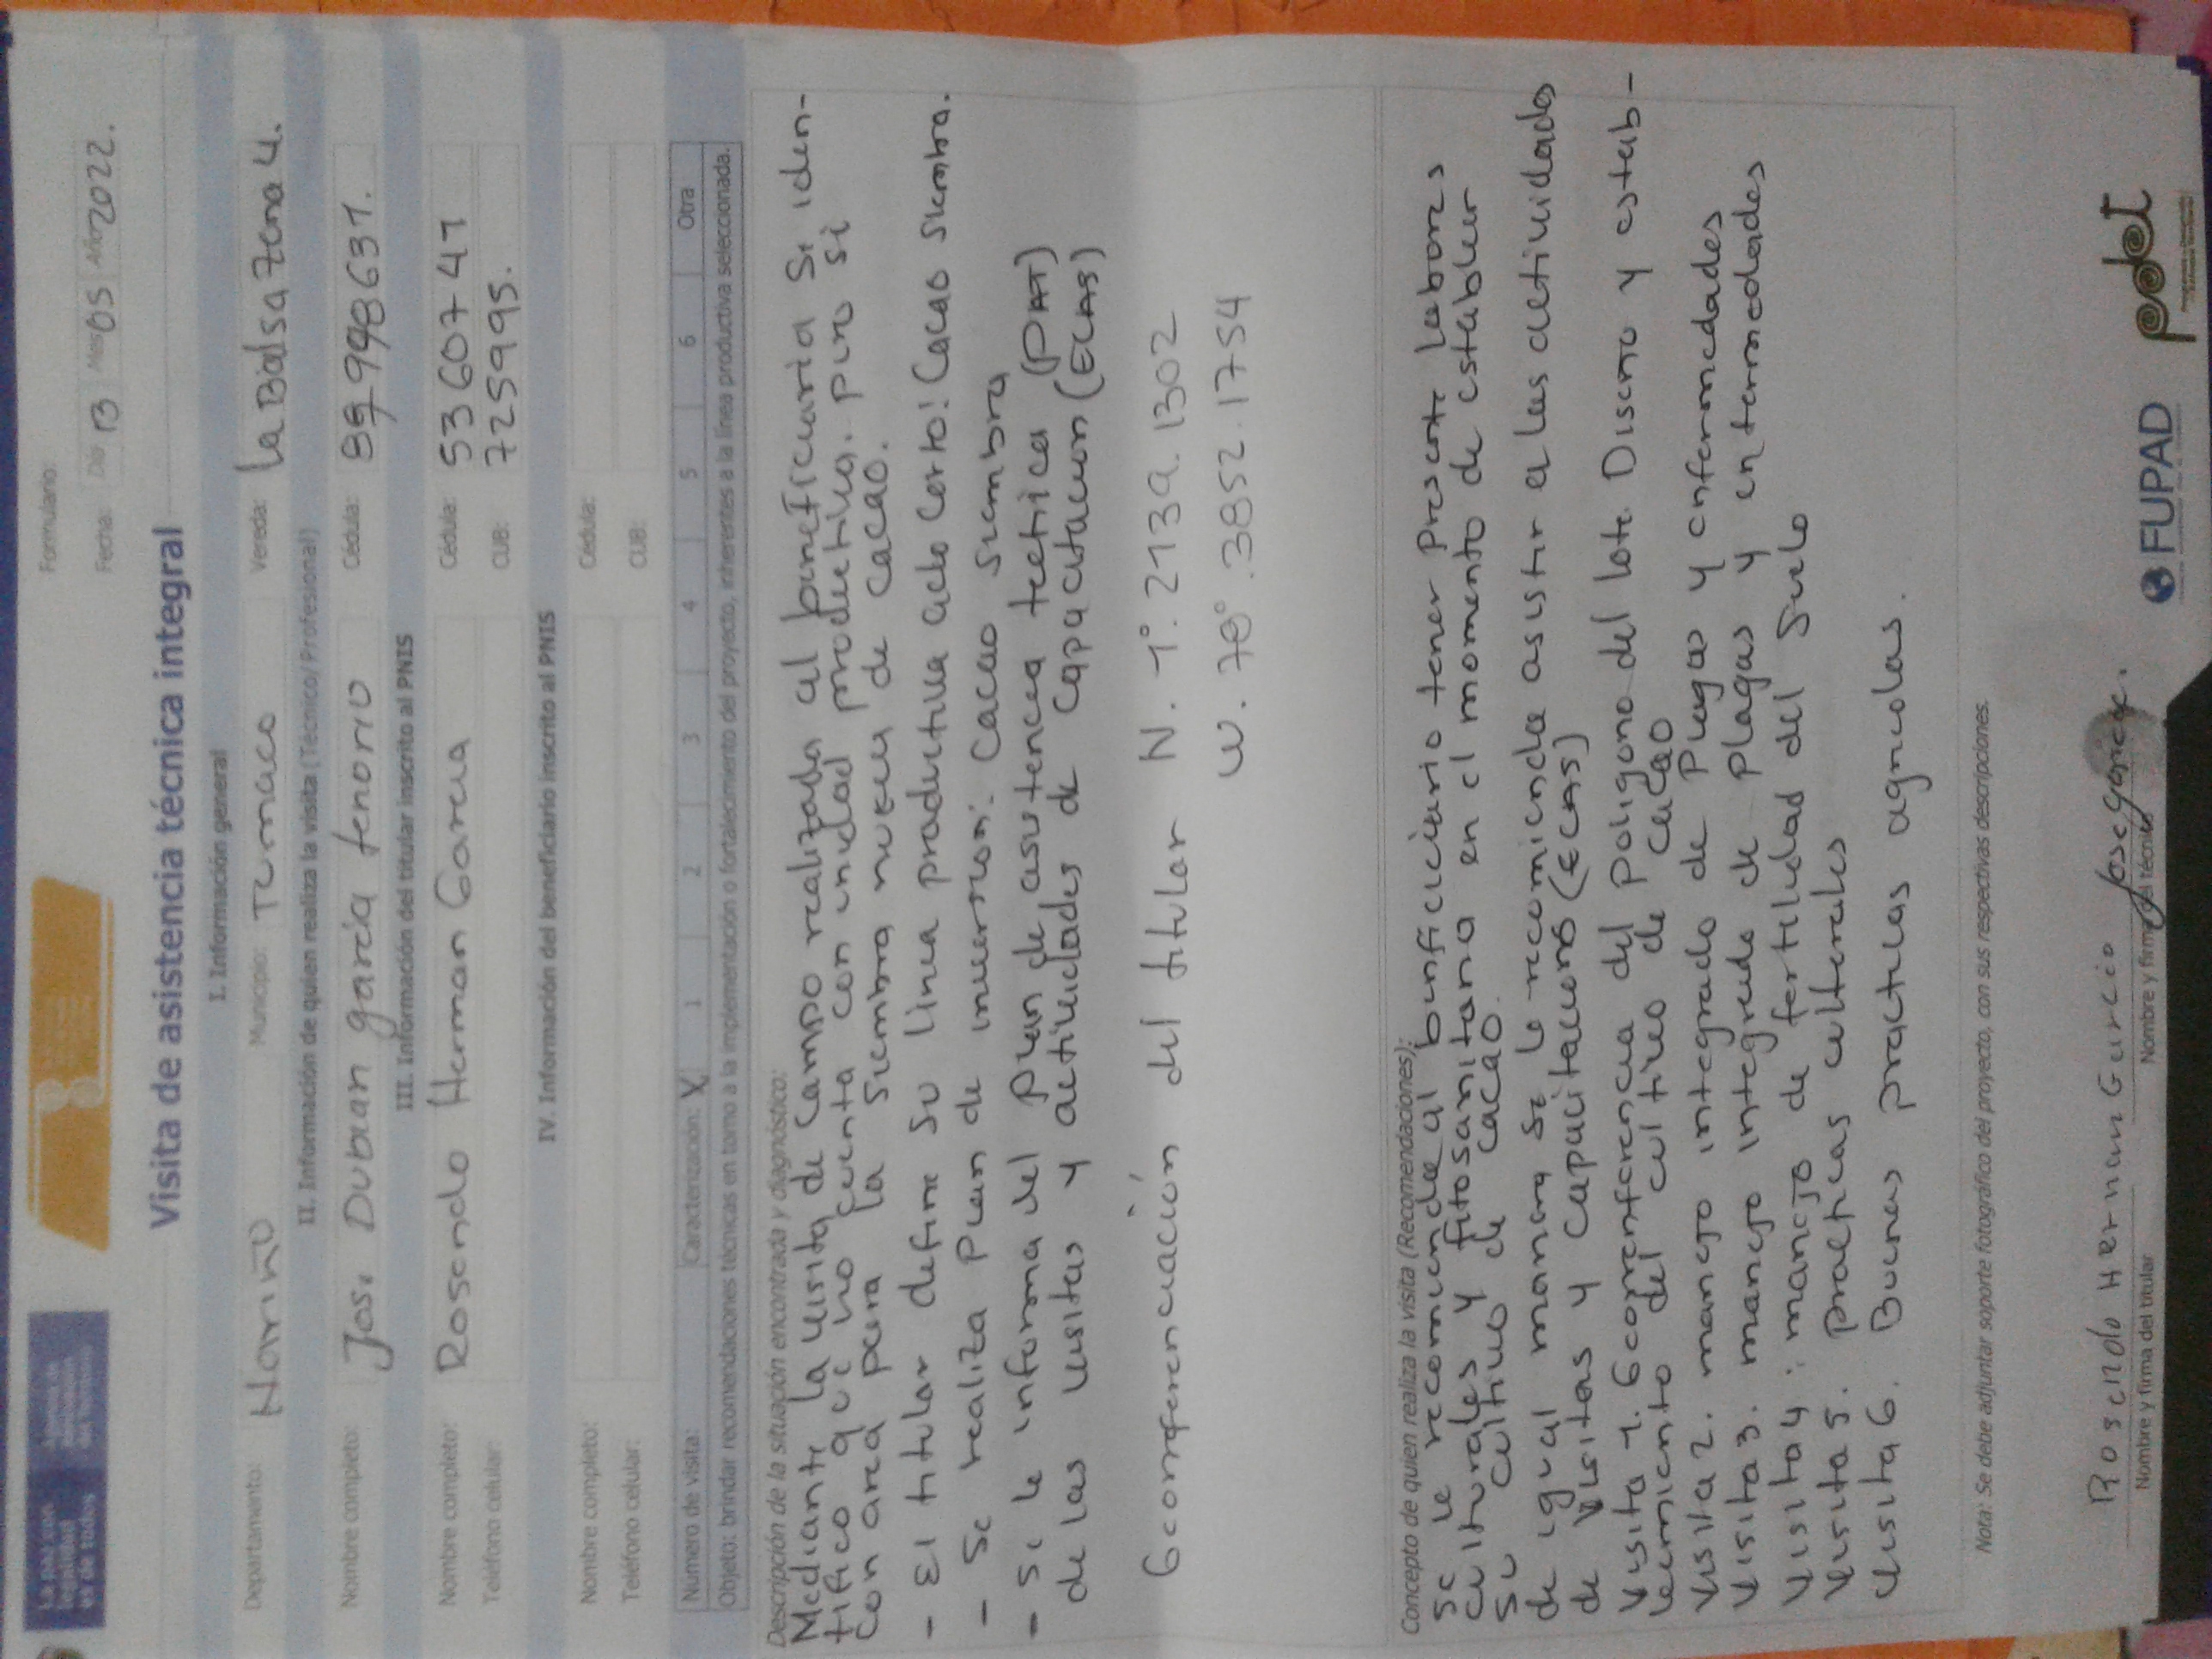 La paz con legalidad es de todos
Formulario:
Fecha: Día 13 Mes 05 Año 2022.
Visita de asistencia técnica integral
I. Información general
Departamento: Nariño Municipio: Tumaco Vereda: la Balsa Zona 4.
II. Información de quien realiza la visita (Técnico/Profesional)
Nombre completo: Jose Duban garcia tenorio Cédula:
III. Información del titular inscrito al PNIS
Nombre completo: Rosendo Hernan Garcia Cédula: 5360747
Teléfono celular: CUB: 725995.
IV. Información del beneficiario inscrito al PNIS
Nombre completo: Cédula:
Teléfono celular: CUB:
Número de visita: Caracterización: X 1 2 3 4 5 6 Otra
Objeto: brindar recomendaciones técnicas en torno a la implementación o fortalecimiento del proyecto, inherentes a la línea productiva seleccionada.
Descripción de la situación encontrada y diagnóstico:
Mediante la visita de campo realizada al beneficiario Se iden-
tifico que no cuenta con unidad productiva. pero si
Con area para la siembra nueva de cacao.
- El titular define su linea productiva ciclo corto! Cacao siembra.
- Se realiza Plan de inversion: cacao siembra
- Se le informa del Plan de asistencia tecnica (PAT)
de las visitas y actividades de capacitacion (ECAS)
Georreferenciación del titular N. 1°. 2139. 1302
W. 78°. 3852. 1754
Concepto de quien realiza la visita (Recomendaciones):
se le recomienda al beneficiario tener presente labores
culturales y fitosanitario en el momento de establecer
Su cultivo de cacao.
de igual manera se le recomienda asistir a las actividades
de Visitas y capacitacions (ECAS)
Visita 1. Georreferencia del poligono del lote. Diseño y estab-
lecimiento del cultivo de cacao
Visita 2. manejo integrado de Plagas y enfermedades
Visita 3. manejo integrado de plagas y enfermedades
Visita 4: manejo de fertilidad del Suelo
Visita 5. practicas culturales
Visita 6. Buenas practicas agricolas.
Nota: Se debe adjuntar soporte fotográfico del proyecto, con sus respectivas descripciones.
Rosendo Hernan Garcia Jose garcia.
Nombre y firma del titular Nombre y firma del técnico
FUPAD pdet